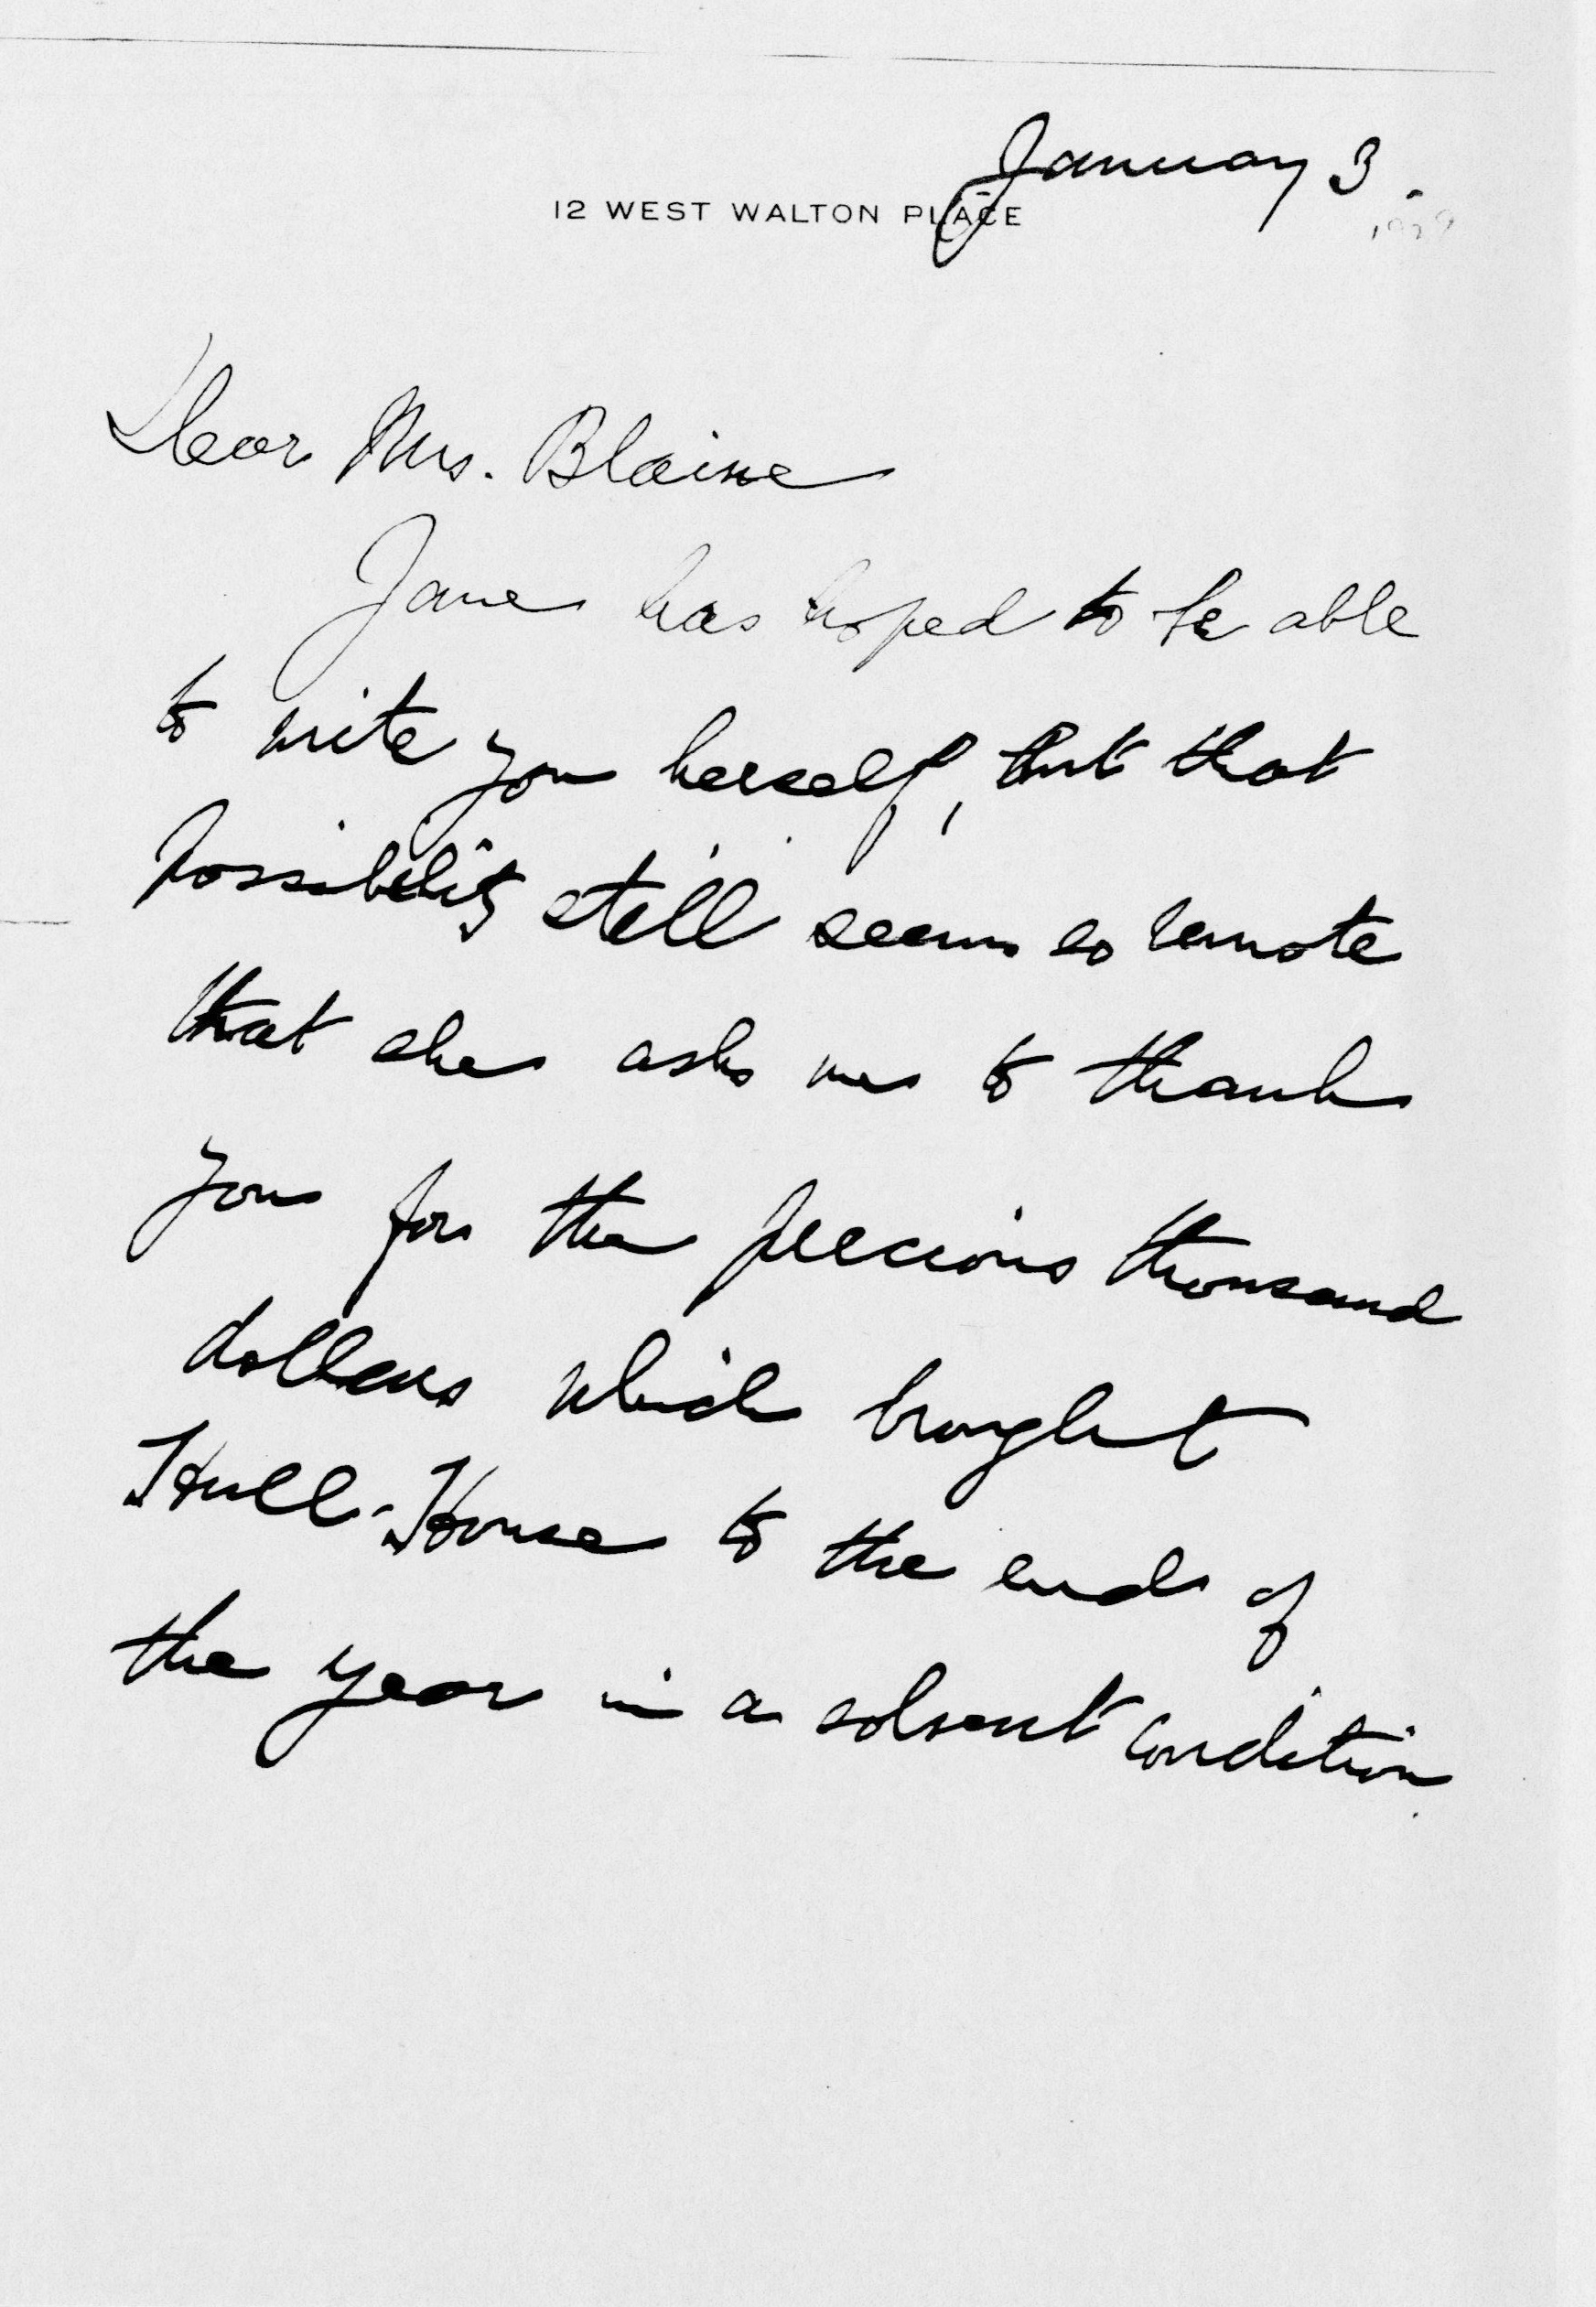 January 3.
12 WEST WALTON PLACE
1929
Dear Mrs. Blaine
Jane has hoped to be able
to write you herself, but that
possibility still seems so remote
that she asks me to thank
you for the precious thousand
dollars which brought
Hull-House to the end of
the year in a solvent condition